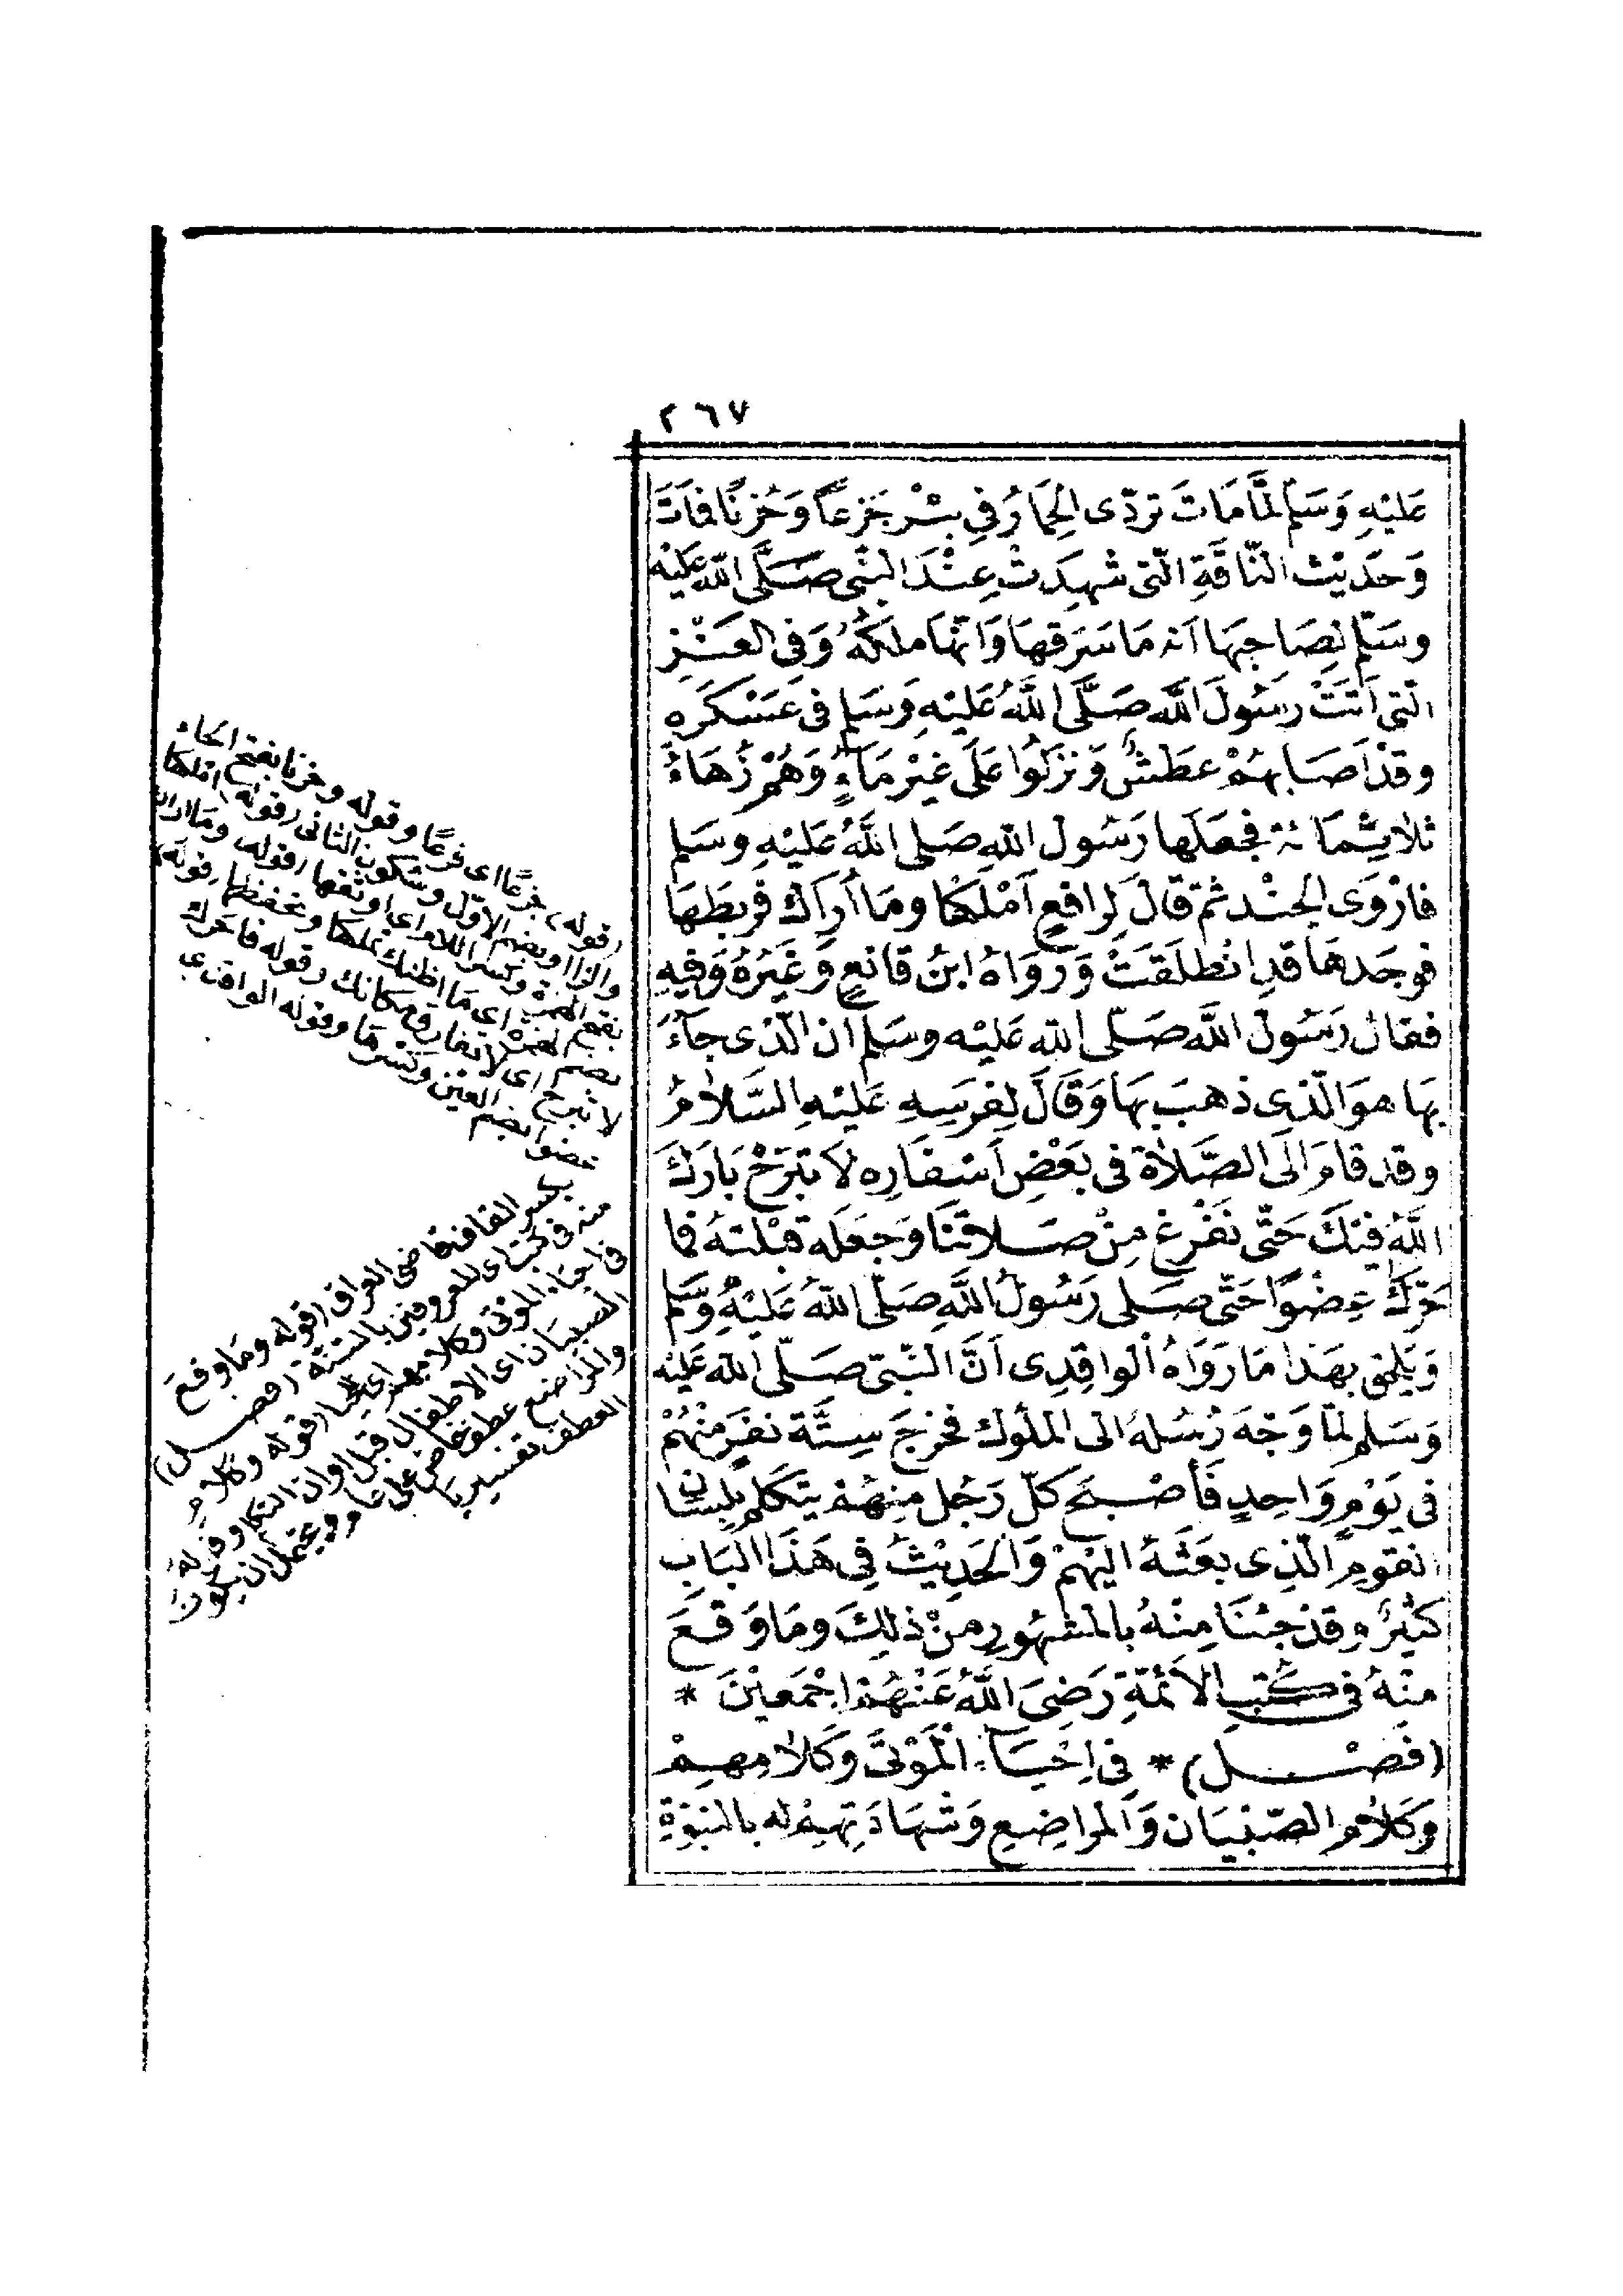 ٢٦٧
عَلَيْهِ وَسَلَّم لَمَّا مَاتَ تردّى الحِمَارُ فِي بِئْرٍ جَزَعًا وَحُزْنًا فمَاتَ
وَحَدِيْث النَّاقَةِ الّتى شَهِدَتْ عِنْدَ النَّبِّى صَلَّى اللّٰه عَلَيْه
وسَلّم لِصَاحِبِهَا اَنه مَا سَرَقهَا وَانّهَا مِلكُهُ وَفِى العَنْزِ
الّتِى اَتَتْ رَسُولَ اللَّه صَلَّى اللَّهُ عَلَيْهِ وَسَلم فى عَسْكَرِهِ
وقدْ اَصَابهُمْ عطَشٌ وَنَزَلُوا عَلَى غَيْرِ مَاءٍ وَهُمْ زُهَاءُ
ثَلاثِمَائة فحَلَبَها رَسُول اللهِ صَلى اللَّهُ عَلَيْهِ وسَلم
فارْوَى الجنْد ثم قَالَ لِرافِعٍ اَمْلِكهَا ومَا أُرَاكَ فرَبطَهَا
فوجَدهَا قدِ انْطلَقَتْ وَرَوَاهُ ابنُ قانعٍ وَغَيْرُهُ وَفِيهِ
فقال رَسُول اللَّه صَلّى اللهِ عَليْه وسَلم ان الّذى جَآءَ
بهَا هوَ الّذِى ذهبَ بهَا وَقَالَ لِفرَسِهِ عَليْهِ السَّلَامُ
وقد قامَ الَى الصَّلَاة فى بَعْضِ أَسْفَارِهِ لَا تَبْرَحْ بَارَكَ
اللّهُ فيْكَ حَتّى نَفْرغ مِنْ صَلَاتَنَا وَجعَلَه قِبْلتهُ فما
حَرّكَ عِضْوًا حَتّى صَلى رَسُولُ اللَّهِ صَلّى اللهُ عَليْهِ وسَّلم
وَيَلحَق بهَذا مَا رَوَاهُ الْواقِدِى اَنَّ النَّبّى صَلّى الله عَليْه
وَسَلم لمّا وَجّهَ رُسُلهُ الى الملُوك فخرجَ سِتَّة نفَرٍ مِنْهُمْ
فى يَوْمٍ وَاحِدٍ فَأصْبَح كلّ رَجُل مِنهُمْ يتَكَلم بِلِسَانِ
القومِ الّذِى بعَثهُ اليْهِمْ وَالحَدِيْثُ فِى هَذَا البَابِ
كثِيْرٌ وقدْ جئنَا مِنْهُ بالمشهُورِ مِنْ ذلِكَ ومَا وَقَعَ
مِنْهُ فى كُتبِ الأَئمّةِ رَضِىَ اللَّهُ عَنْهُمْ اجْمَعِيْنَ *
(فَصْل) * فِى اِحْيَاءِ الْمَوْتَى وَكَلامِهِمْ
وَكَلَام الصّبْيَان وَالمرَاضِعِ وَشهَادَتِهِمْ له بالنبوّةِ
(قوله جزعًا اى فزعًا وقوله وحزنا بفتح الحاء
والزا وبضم الاوّل وسكون الثانى (قوله املكها
بفتح الهمزة وكسر اللام اى اوثقها (قوله وما اراك
بضم الهمزة اى ما اظنك تملكها وتحفظها (قوله
لا تبرح اى لا تفارق مكانك (قوله فا حرك
عضوا بضم العين وكسرها وقوله الواقدى
بكسر القاف قاضى العراق (قوله وما وقع
منه فى كتب اى للمعروفين بالسنّة (فصل)
فى احياء الموتى وكلامهم اى (قوله وكلام
الصبيان اى الاطفال قبل اوان التكلم وقوله
والمراضع عطف خاص على عام ويحتمل ان يكون
العطف تفسيريا